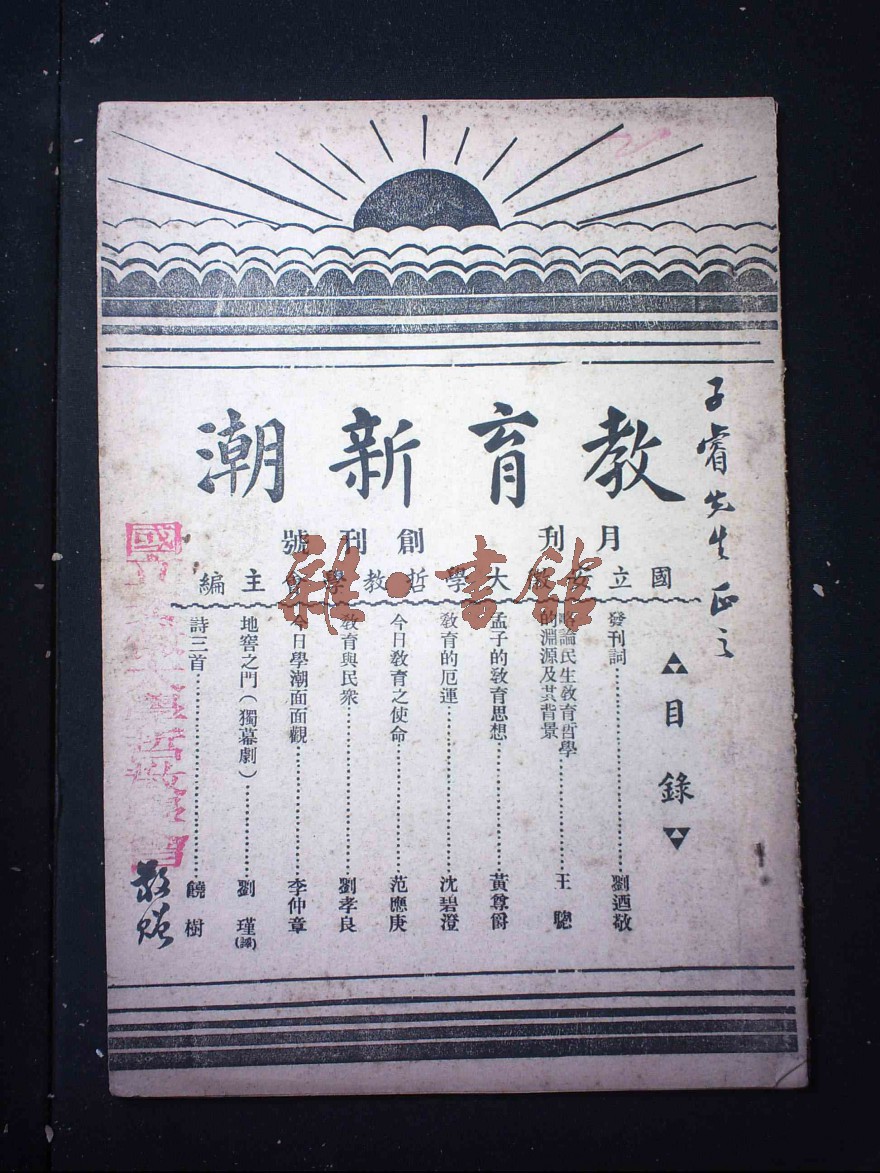 教育新潮
月刊 創刊號
國立安徽大學哲教學會主編
子睿先生正之
目錄
發刊詞 劉迺敬
略論民生教育哲學的淵源及其背景 王聰
孟子的教育思想 黃尊爵
教育的厄運 沈碧澄
今日教育之使命 范應庚
教育與民衆 劉孝良
今日學潮面面觀 李仲章
地窖之門(獨幕劇) 劉瑾(譯)
詩三首 饒樹
敬贈
雜·書館